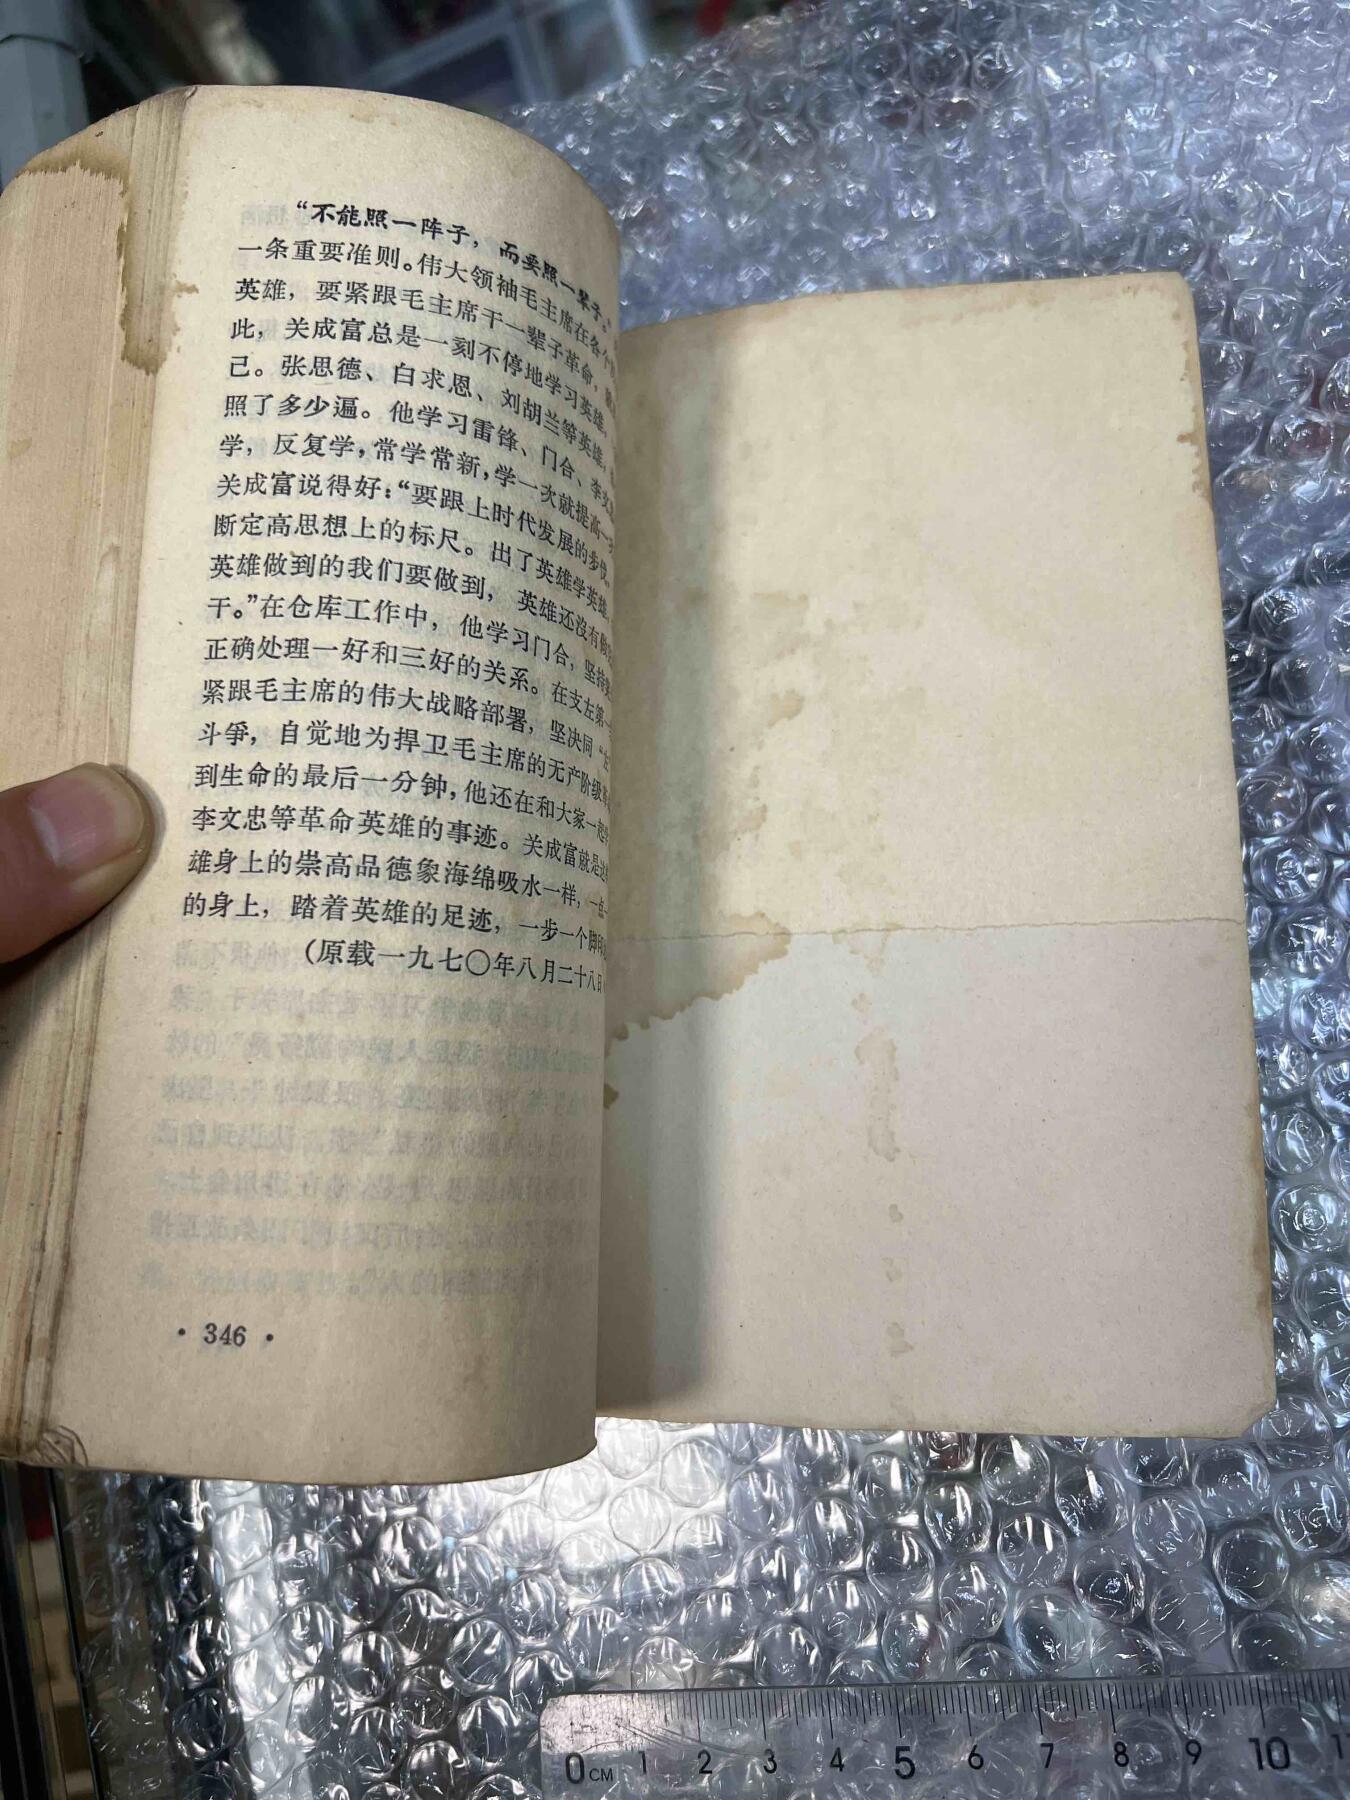 “不能照一阵子，而要照一辈子。”
一条重要准则。伟大领袖毛主席在各个
英雄，要紧跟毛主席干一辈子革命，
此，关成富总是一刻不停地学习英雄，
己。张思德、白求恩、刘胡兰等英雄，
照了多少遍。他学习雷锋、门合、李文
学，反复学，常学常新，学一次就提高一
关成富说得好：“要跟上时代发展的步伐，
断定高思想上的标尺。出了英雄学英雄，
英雄做到的我们要做到，英雄还沒有做
干。”在仓库工作中，他学习门合，坚持
正确处理一好和三好的关系。在支左第一
紧跟毛主席的伟大战略部署，坚决同“
斗爭，自觉地为捍卫毛主席的无产阶级革
到生命的最后一分钟，他还在和大家一起学
李文忠等革命英雄的事迹。关成富就是这
雄身上的崇高品德象海绵吸水一样，一点一
的身上，踏着英雄的足迹，一步一个脚印
（原载一九七〇年八月二十八日
· 346 ·
0 CM 1 2 3 4 5 6 7 8 9 10